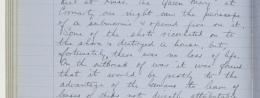 "Queen Mary" at
Cromarty one night saw the periscope
of a submarine & opened fire on it.
Some of the shots ricocheted on to
the shore & destroyed a house but,
fortunately, there was no loss of life.
On the outbreak of war it was found
that it would be greatly to the
advantage of the Germans to leave